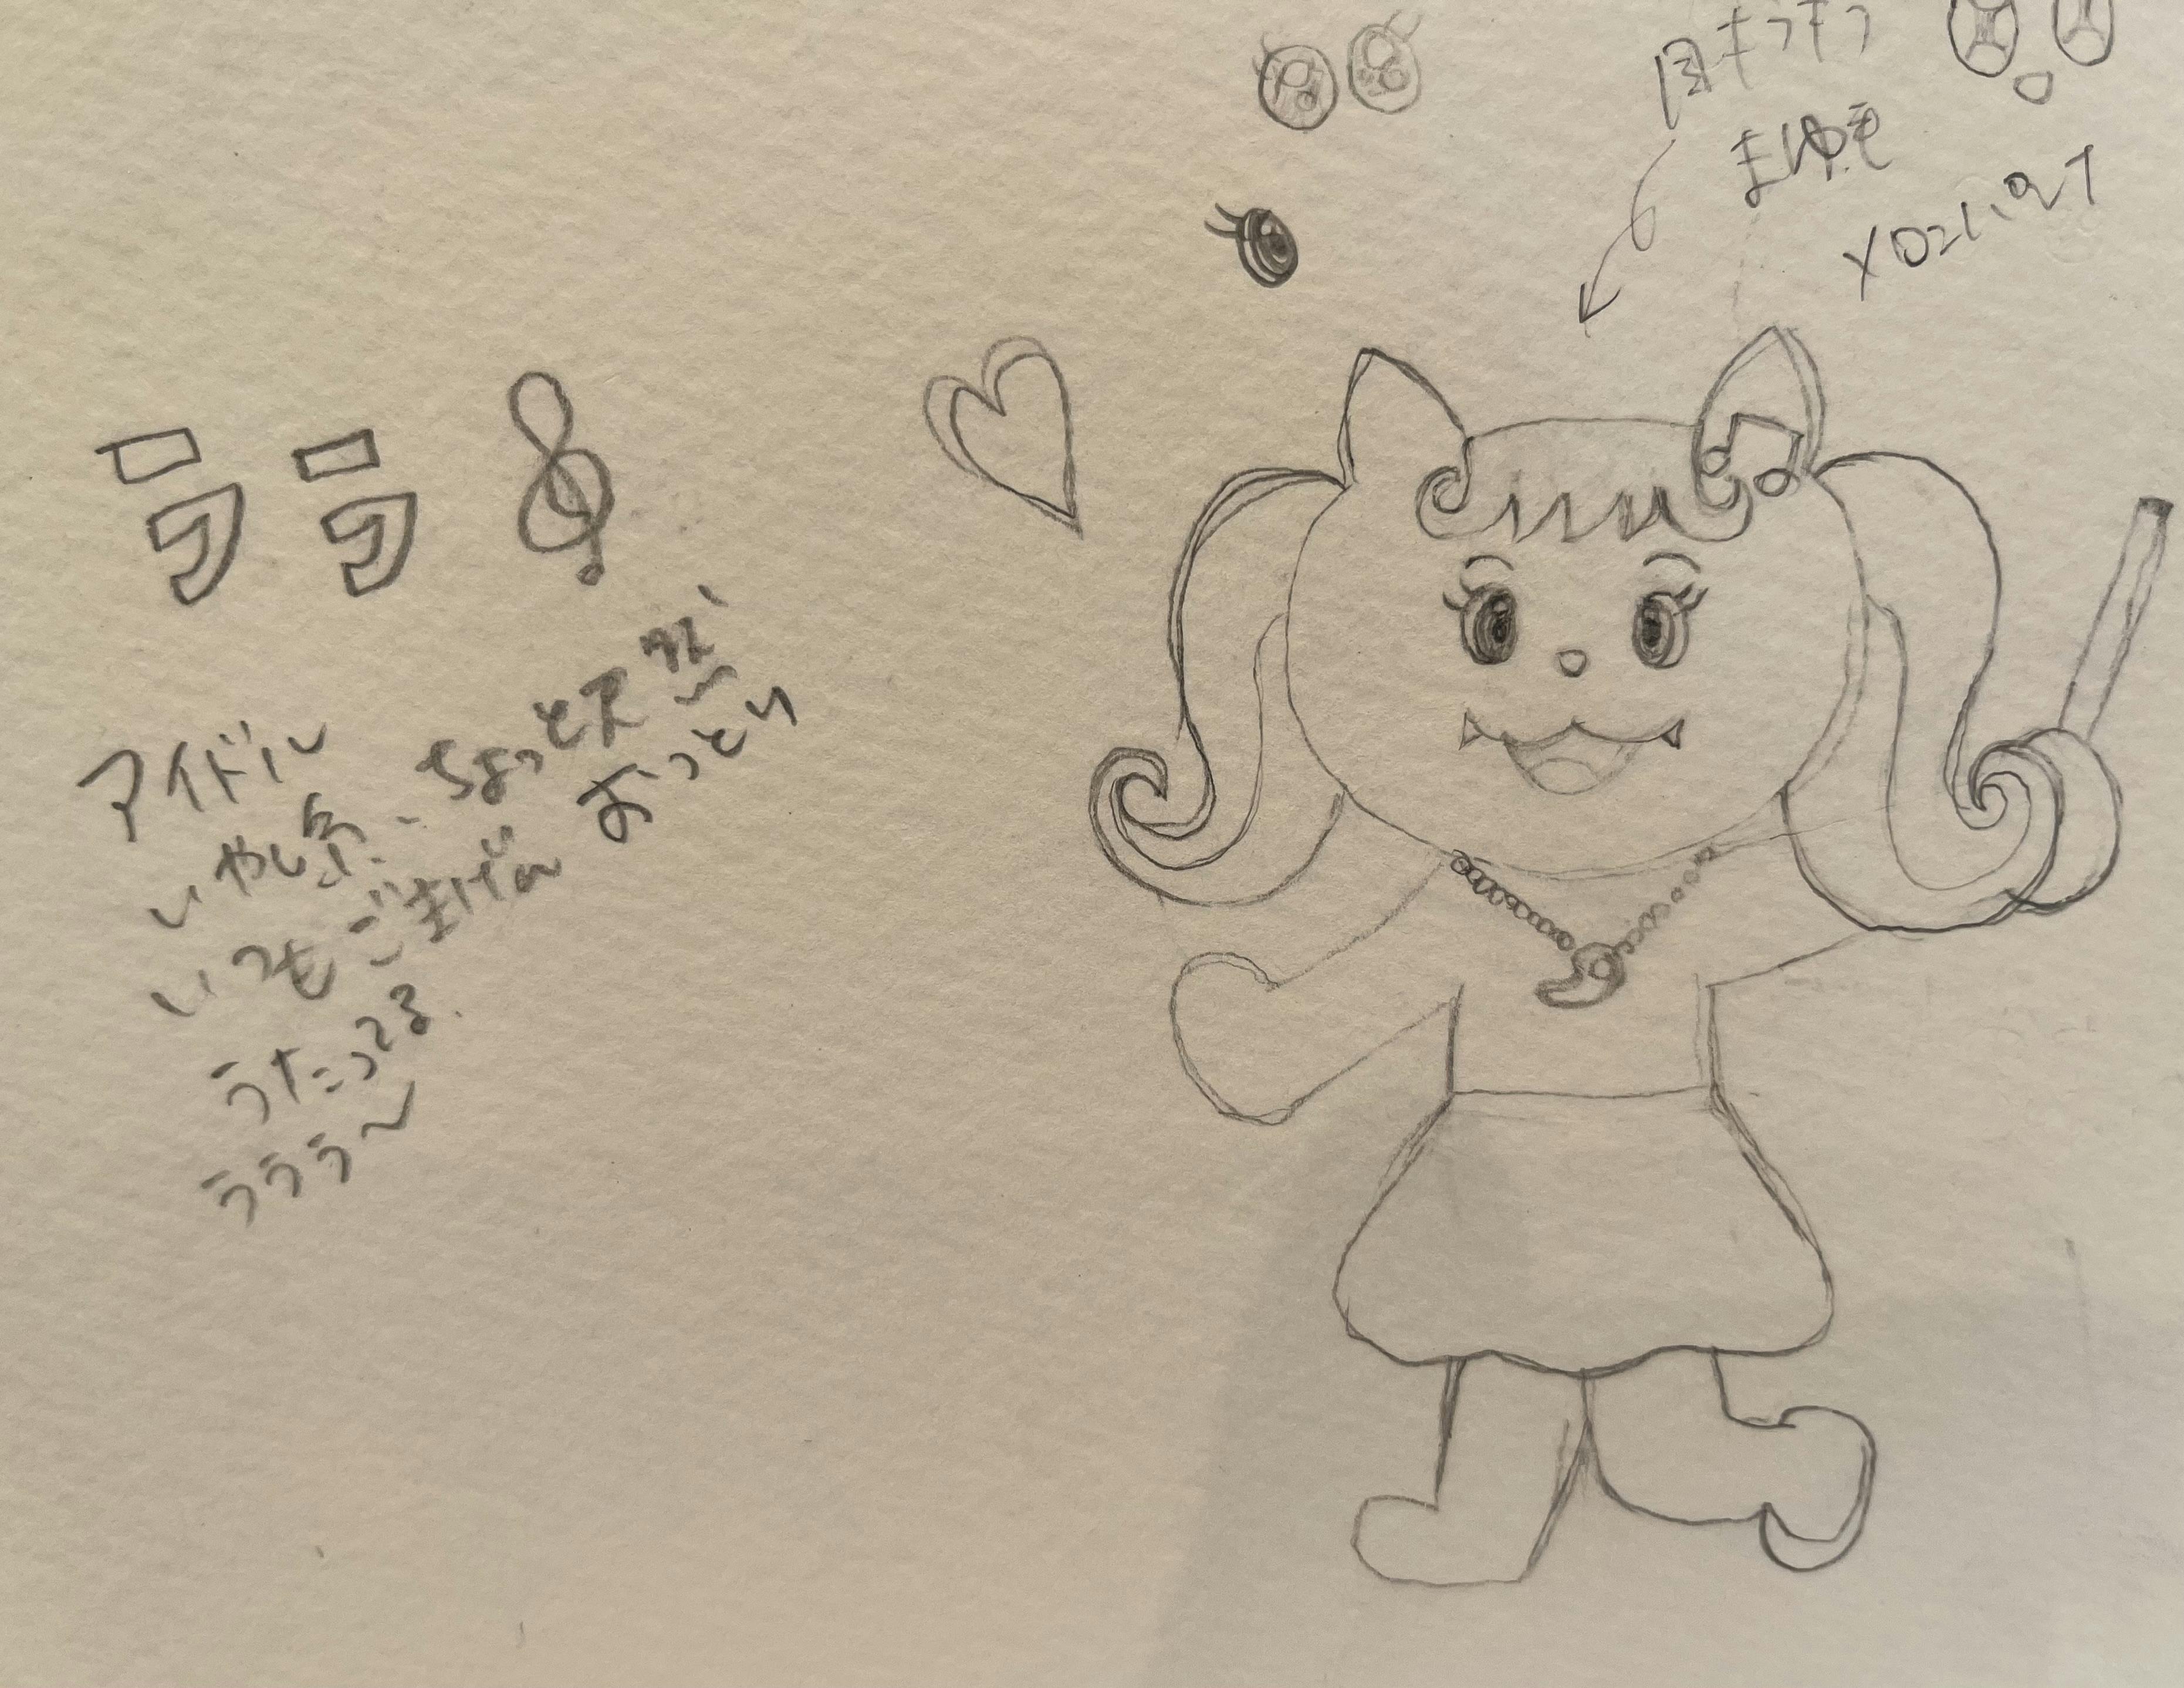 ララ
アイドル
いやし系、ちょっと天然、
おっとり
いつもごきげん
うたってる
ラララ〜
目キラキラ
まゆ毛